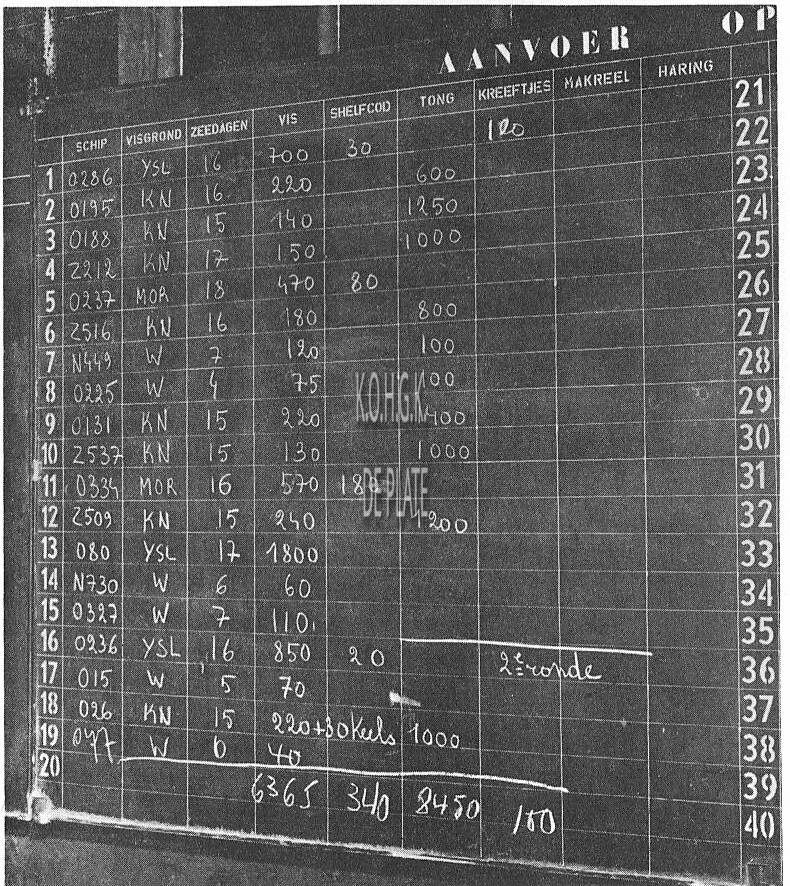 AANVOER OP
SCHIP VISGROND ZEEDAGEN VIS SHELFCOD TONG KREEFTJES MAKREEL HARING
1 0286 YSL 16 700 30 120 21
2 0195 KN 16 220 600 22
3 0188 KN 15 140 1250 23
4 Z212 KN 17 150 1000 24
5 0237 MOR 18 470 80 25
6 Z516 KN 16 180 800 26
7 N449 W 7 120 100 27
8 0225 W 4 75 100 28
K.O.H.G.K.
9 0131 KN 15 220 400 29
10 Z537 KN 15 130 1000 30
11 0334 MOR 16 570 180 31
DE PLATE
12 Z509 KN 15 240 1200 32
13 080 YSL 17 1800 33
14 N730 W 6 60 34
15 0327 W 7 110 35
16 0236 YSL 16 850 20 2e ronde 36
17 015 W 5 70 37
18 026 KN 15 220+30 Kuls 1000 38
19 W 6 40 39
20 6365 340 8450 40